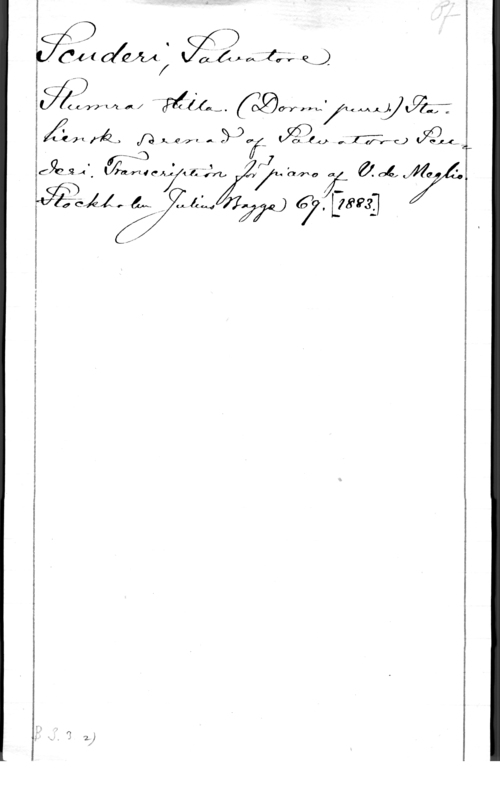 Scuderi, Salvatore.
Slumra stilla. (Dormi pure) Ita-
liensk serenad af Salvatore Scu-
deri. Transcription för piano af V. de Meglio.
Stockholm Julius Bagge 69. [1883]